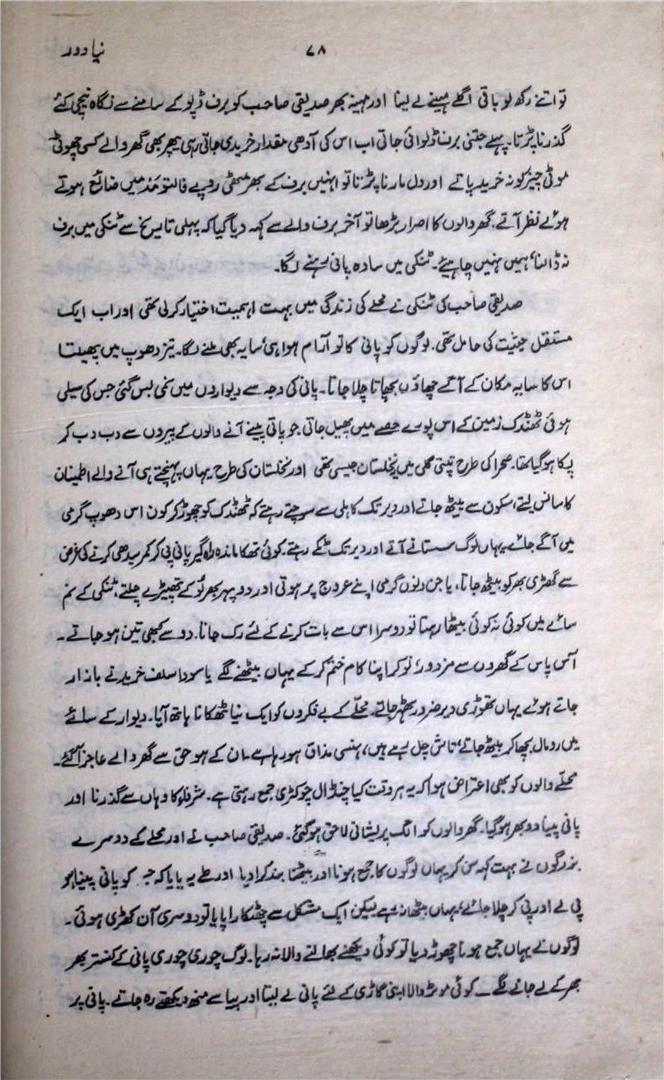 نیا دور ۷۸
تو اتنے رکھ لو باقی اگلے مہینے لے لینا اور مہینہ بھر صدیقی صاحب کو برف ڈپو کے سامنے سے نگاہ نیچی کئے
گذرنا پڑتا۔ پہلے جتنی برف ڈلوائی جاتی اب اس کی آدھی مقدار خریدی جاتی رہی پھر بھی گھر والے کسی چھوٹی
موٹی چیز کو نہ خرید پاتے اور دل مارنا پڑتا تو انہیں برف کے بھر مٹھی روپے فالتو مد میں ضائع ہوتے
ہوئے نظر آتے۔ گھر والوں کا اصرار بڑھا تو آخر برف والے سے کہہ دیا گیا کہ پہلی تاریخ سے ٹنکی میں برف
نہ ڈالنا، ہمیں نہیں چاہیئے۔ ٹنکی میں سادہ پانی رہنے لگا۔
صدیقی صاحب کی ٹنکی نے محلے کی زندگی میں بہت اہمیت اختیار کر لی تھی اور اب ایک
مستقل حیثیت کی حامل تھی۔ لوگوں کو پانی کا تو آرام ہوا ہی، سایہ بھی ملنے لگا۔ تیز دھوپ میں بھیگتا
اس کا سایہ مکان کے آگے چھاؤں بچھاتا چلا جاتا۔ پانی کی وجہ سے دیواروں میں نمی بس گئی جس کی سیلی
ہوئی ٹھنڈک زمین کے اس پورے حصے میں پھیل جاتی جو پانی پینے آنے والوں کے پیروں سے دب دب کر
پکا ہو گیا تھا۔ صحرا کی طرح تپتی گلی میں یہ نخلستان جیسی تھی اور نخلستان کی طرح یہاں پہنچتے ہی آنے والے اطمینان
کا سانس لیتے، سکون سے بیٹھ جاتے اور دیر تک کاہلی سے سوچتے رہتے کہ ٹھنڈک کو چھوڑ کر کون اس دھوپ گرمی
میں آگے جائے یہاں لوگ سستانے آتے اور دیر تک ٹکے رہتے۔ کوئی تھکا ماندہ راہ گیر پانی پی کر کمر سیدھی کرنے کی غرض
سے گھڑی بھر کو بیٹھ جاتا، یا جن دنوں گرمی اپنے عروج پر ہوتی اور دوپہر بھر لُو کے تھپیڑے چلتے، ٹنکی کے نم
سائے میں کوئی نہ کوئی بیٹھا رہتا تو دوسرا اس سے بات کرنے کے لئے رک جاتا۔ دو سے کبھی تین ہو جاتے۔
آس پاس کے گھروں سے مزدور، نوکر اپنا کام ختم کر کے یہاں بیٹھنے لگے یا سودا سلف خریدنے بازار
جاتے ہوئے یہاں تھوڑی دیر ضرور ٹھہر جاتے۔ محلّے کے بے فکروں کو ایک نیا ٹھکانا ہاتھ آیا۔ دیوار کے سائے
میں رومال بچھا کر بیٹھ جاتے، تاش چل رہے ہیں، ہنسی مذاق ہو رہا ہے۔ ان کے ہو حق سے گھر والے عاجز آ گئے۔
محلّے والوں کو بھی اعتراض ہوا کہ یہ ہر وقت کیا چنڈال چوکڑی جمع رہتی ہے۔ شرفاء کا وہاں سے گذرنا اور
پانی پینا دوبھر ہو گیا۔ گھر والوں کو الگ پریشانی لاحق ہو گئی۔ صدیقی صاحب نے اور محلے کے دوسرے
بزرگوں نے بہت کہہ سن کر یہاں لوگوں کا جمع ہونا اور بیٹھنا بند کرا دیا اور طے یہ پایا کہ جس کو پانی پینا ہو
پی لے اور پی کر چلا جائے، یہاں بیٹھا نہ رہے لیکن ایک مشکل سے چھٹکارا پایا تو دوسری آن کھڑی ہوئی۔
لوگوں نے یہاں جمع ہونا چھوڑ دیا تو کوئی دیکھنے بھالنے والا نہ رہا۔ لوگ چوری چوری پانی کے کنستر بھر
بھر کے لے جانے لگے۔ کوئی موٹر والا اپنی گاڑی کے لئے پانی لے لیتا اور پیاسے منھ دیکھتے رہ جاتے۔ پانی پر